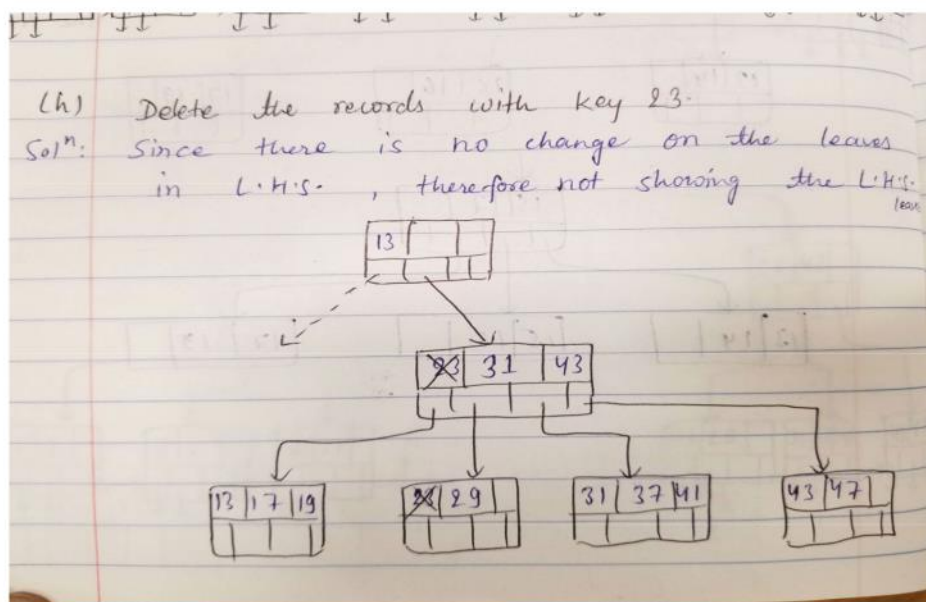 (h) Delete the records with key 23.
Solⁿ: Since there is no change on the leaves
in L.H.S. , therefore not showing the L.H.S.
leave
13
23 31 43
13 17 19 23 29 31 37 41 43 47